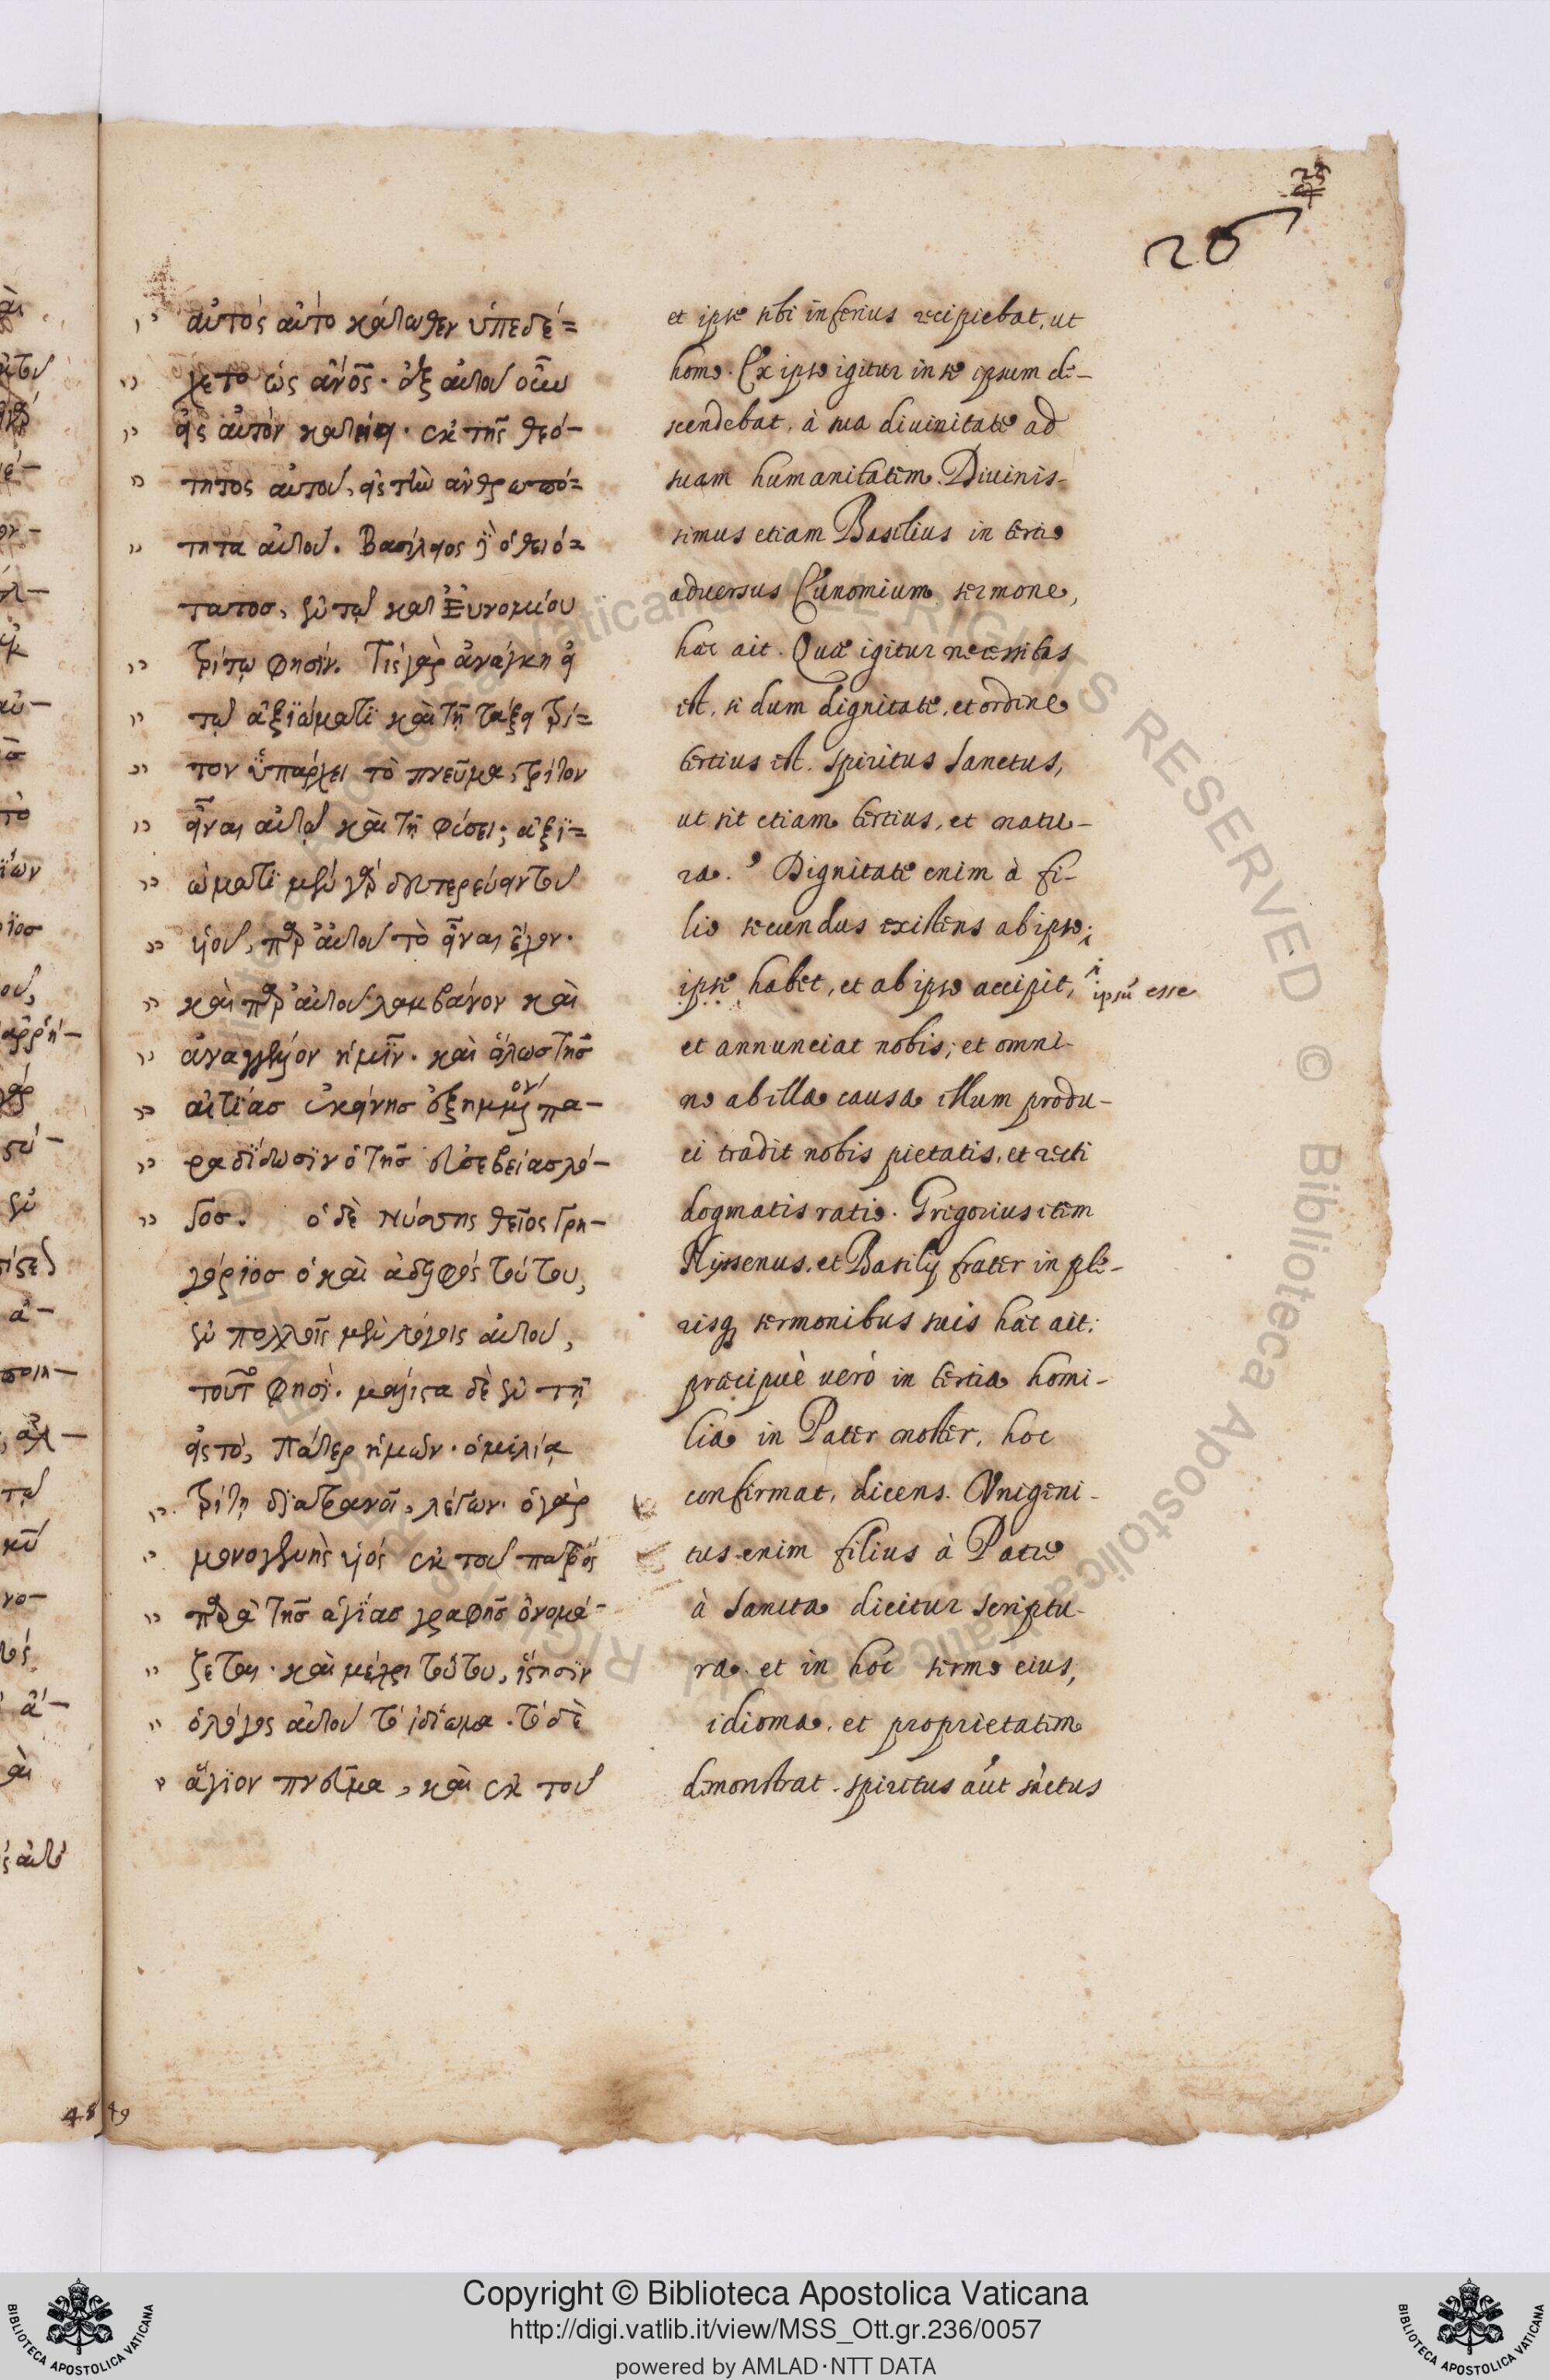 25
25
αὐτὸς αὐτὸ κάτωθεν ὑπεδέ=
χετο ὡς ἄν̅ος· ἐξ αὐτοῦ οὖν
εἰς αὐτὸν κατῄει· ἐκ τῆς θεό-
τητος αὐτοῦ, εἰς τὴν ἀνθρωπό=
τητα αὐτοῦ. Βασίλειος δὲ ὁ θειό=
τατοσ, ἐν τῷ κατ Ἐυνομίου
τρίτῳ φησίν. Τίς γὰρ ἀνάγκη εἰ
τῷ ἀξϊώματϊ καὶ τῇ τάξει τρί=
τον ὑπάρχει τὸ πνεῦμα, τρίτον
εἶναι αὐτὸ καὶ τῇ φύσει; ἀξϊ=
ώματϊ μὲν γὰρ δευτερεύειν τοῦ
υἱοῦ, παρ αὐτοῦ τὸ εἶναι ἔχον·
καὶ παρ αὐτοῦ λαμβάνον καὶ
ἀναγγέλλον ἡμῖν· καὶ ὅλωσ τῆσ
αἰτίασ ἐκείνησ ἐξημμένον πα-
ραδίδωσϊν ὁ τῆσ εὐσεβείασ λό-
γοσ. ὁ δὲ Νύσσης θεῖος Γρη-
γόρϊοσ ὁ καὶ ἀδελφὸς τούτου,
ἐν πολλοῖς μὲν λόγοις αὐτοῦ,
τοῦτο φησὶ. μάλιστα δὲ ἐν τῇ
εἰς τὸ, Πάτερ ἡμῶν· ὁμιλίᾳ
τρίτῃ διατρανοῖ, λέγων· ὁ γὰρ
μονογενὴς υἱός ἐκ τοῦ πατρὸς
παρὰ τῆσ ἁγίασ γραφῆσ ὀνομά-
ζεται· καὶ μέχρι τούτου, ἵστησϊν
ὁ λόγος αὐτοῦ τὸ ἰδίωμα. τὸ δὲ
ἅγϊον πνεῦμα, καὶ ἐκ τοῦ
et ipse sibi inferius recipiebat, ut
homo. Ex ipso igitur in se ipsum de-
scendebat, à sua diuinitate ad
suam humanitatem. Diuinis-
simus etiam Basilius in tertio
aduersus Eunomium sermone,
hæc ait. Quæ igitur necessitas
est, si dum dignitate, et ordine
tertius est. spiritus Sanctus,
ut sit etiam tertius, et natu-
ra. ? Dignitate enim à fi-
lio secundus existens ab ipso;
ipse habet, et ab ipso accipit, ipsū esse
et annunciat nobis; et omni-
no ab illa causa illum produ-
ci tradit nobis pietatis, et recti
dogmatis ratio. Gregorius item
Nyssenus, et Basilij frater in ple-
risq; sermonibus suis hæc ait:
præcipuè uerò in tertia homi-
lia in Pater noster, hoc
confirmat, dicens. Vnigeni-
tus enim filius à Patre
à Sancta dicitur scriptu-
ra. et in hoc sermo eius,
idioma, et proprietatem
demonstrat. spiritus aūt sn̄ctus
48 49
Copyright © Biblioteca Apostolica Vaticana
http://digi.vatlib.it/view/MSS_Ott.gr.236/0057
powered by AMLAD·NTT DATA
BIBLIOTECA APOSTOLICA VATICANA
BIBLIOTECA APOSTOLICA VATICANA